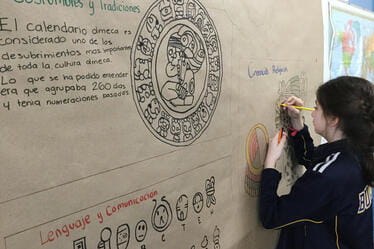 Costumbres y Tradiciones
El calendario olmeca es
considerado uno de los
descubrimientos mas importantes
de toda la cultura olmeca.
Lo que se ha podido entender
era que agrupaba 260 días
y tenia numeraciones pasadas
Creencias Religión
Lenguaje y Comunicación